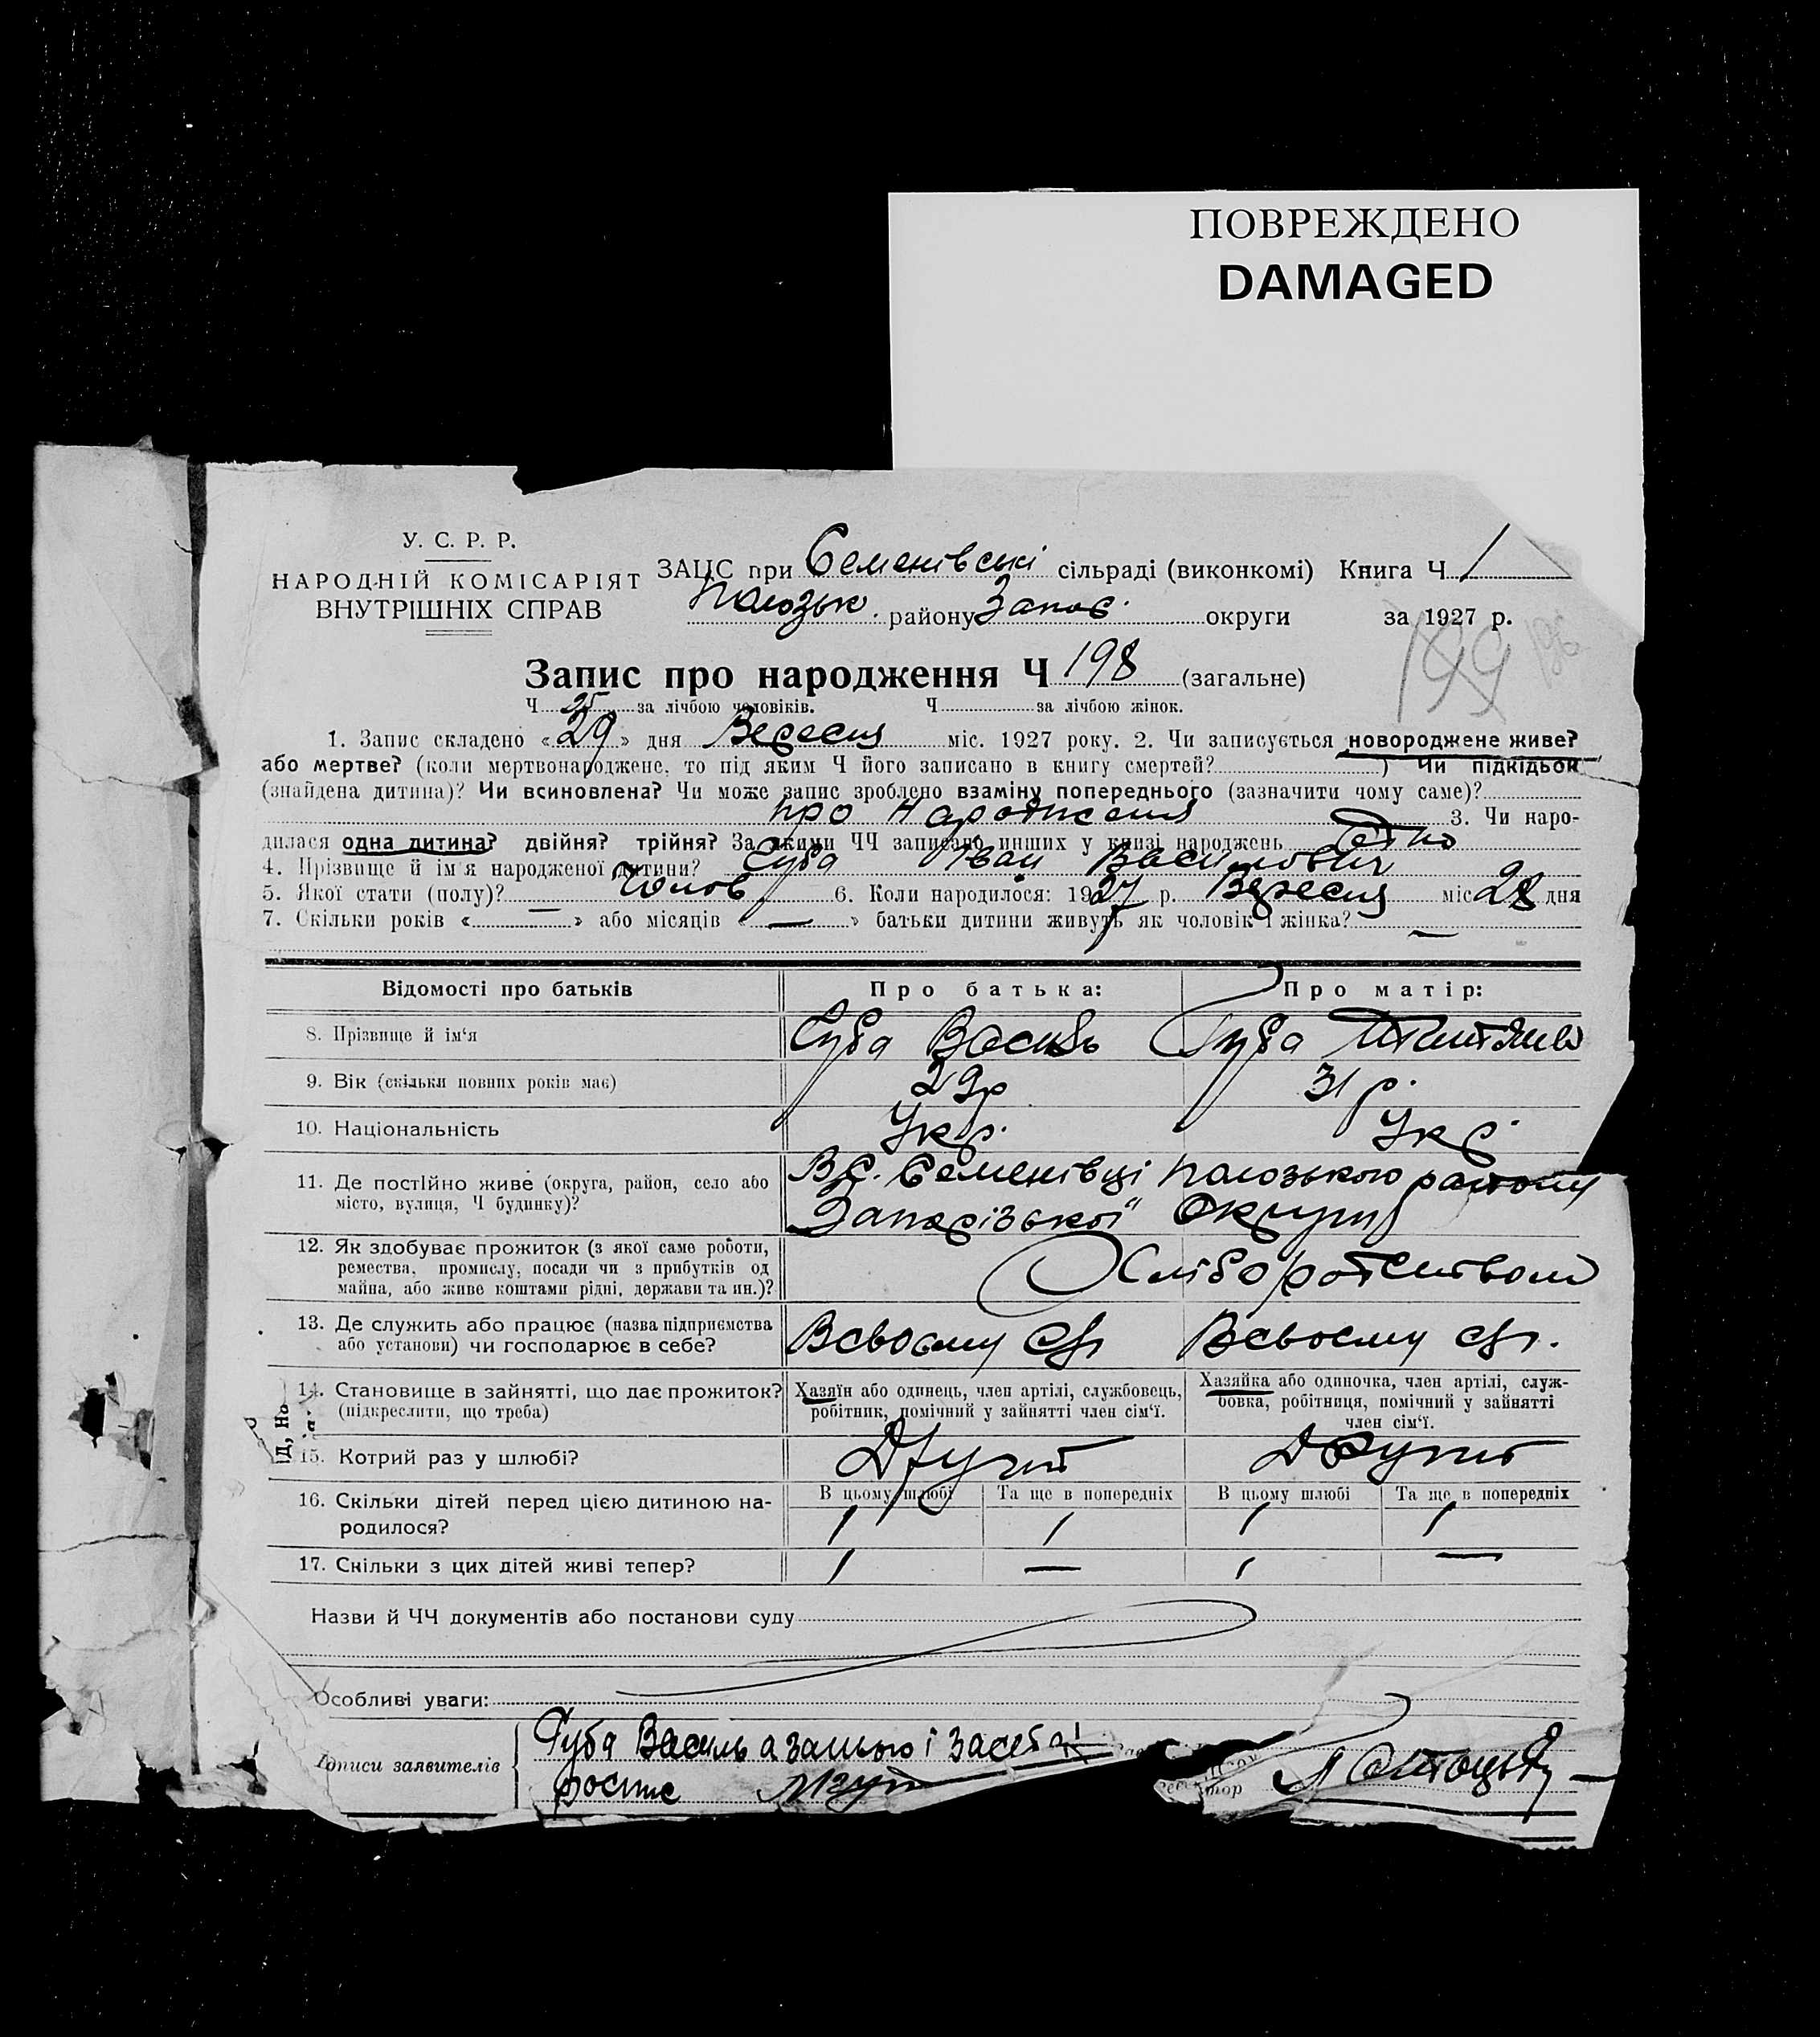 ПОВРЕЖДЕНО
DAMAGED
У. С. Р. Р.
НАРОДНІЙ КОМІСАРІЯТ
ВНУТРІШНІХ СПРАВ
ЗАЦС при Семенівські сільраді (виконкомі) Книга Ч. 1
Пологзьк. району Запоє. округи за 1927 р.
199
Запис про народження Ч 198 (загальне)
Ч. 25 за лічбою чоловіків. Ч. за лічбою жінок.
1. Запис складено «29» дня Вересня міс. 1927 року. 2. Чи записується новороджене живе?
або мертве? (коли мертвонароджене, то під яким Ч його записано в книгу смертей? ) Чи підкідьок
(знайдена дитина)? Чи всиновлена? Чи може запис зроблено взаміну попереднього (зазначити чому саме)?
про народження 3. Чи наро-
дилася одна дитина? двійня? трійня? За якими ЧЧ записано инших у книзі народжень одно
4. Прізвище й ім'я народженої дитини? Губа Іван Василович
5. Якої стати (полу)? Чолов 6. Коли народилося: 1927 р. Вересня міс 28 дня
7. Скільки років «—» або місяців «—» батьки дитини живуть як чоловік і жінка? —
Відомості про батьків Про батька: Про матір:
8. Прізвище й ім'я Губа Василь Губа
9. Вік (скільки повних років має) 29 р 31 р.
10. Національність Укр. Укр.
11. Де постійно живе (округа, район, село або В с. Семенівці Пологзького району
місто, вулиця, Ч будинку)? Запорізької Округи
12. Як здобуває прожиток (з якої саме роботи,
ремества, промислу, посади чи з прибутків од Хліборобством
майна, або живе коштами рідні, держави та ин.)?
13. Де служить або працює (назва підприємства Всвоєму Всвоєму
або установи) чи господарює в себе?
14. Становище в зайнятті, що дає прожиток? Хазяїн або одинець, член артілі, службовець, Хазяйка або одиночка, член артілі, служ-
(підкреслити, що треба) робітник, помічний у зайнятті член сім'ї. бовка, робітниця, помічний у зайнятті
член сім'ї.
15. Котрий раз у шлюбі? Другий Другий
16. Скільки дітей перед цією дитиною на- В цьому шлюбі Та ще в попередніх В цьому шлюбі Та ще в попередніх
родилося? 1 1 1 1
17. Скільки з цих дітей живі тепер? 1 — 1 —
Назви й ЧЧ документів або постанови суду
Особливі уваги:
Підписи заявителів Губа Василь а занього і засебе
роспис